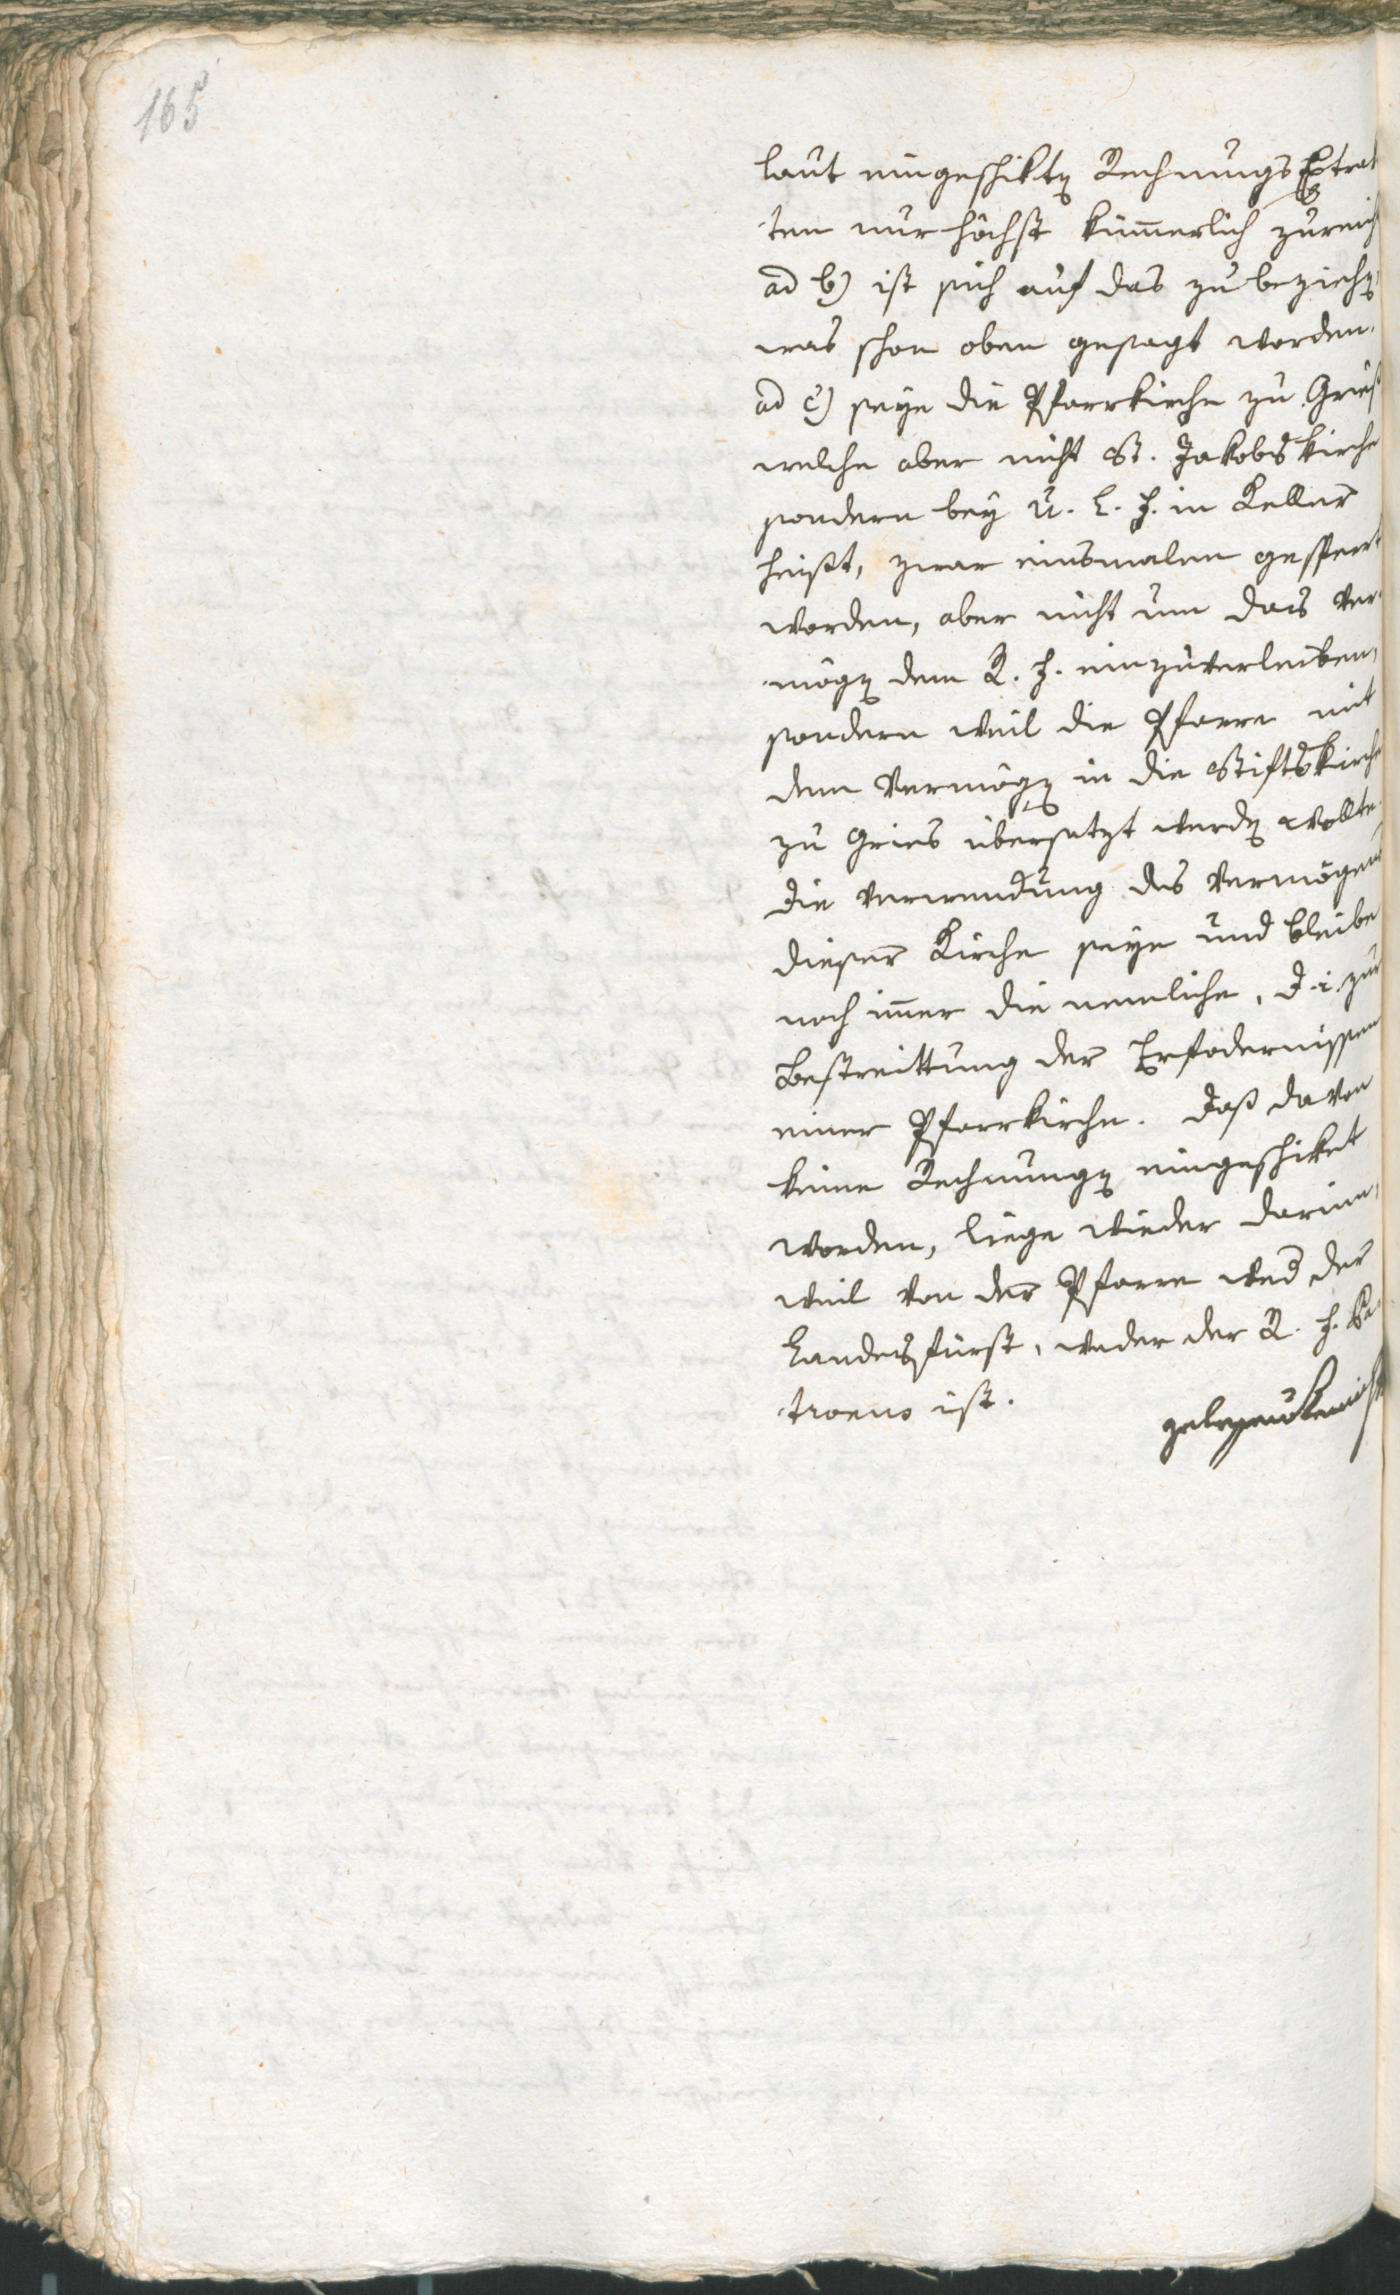 165
laut eingeschikten Rechnungs Extrak
ten nur höchst kümerlich zureich
ad b) ist sich auf das zu beziehen,
was schon oben gesagt worden.
ad c) seye die Pfarrkirche zu Gries
welche aber nicht St. Jakobskirche
sondern bey U. L. F. in Keller
heißt, zwar einsmalen gesperrt
worden, aber nicht um das Ver
mögen dem R. F. einzuverleiben,
sondern weil die Pfarre mit
dem Vermögen in die Stiftskirche
zu Gries übersetzt werden wollte.
Die Verwendung des Vermögens
dieser Kirche seye und bleibe
noch imer die nemliche, d. i. zur
Bestreittung der Erfodernissen
einer Pfarrkirche. Daß davon
keine Rechnungen eingeschiket
worden, liege wieder darinn,
weil von der Pfarre wed der
Landesfürst, weder der R. F. Pa
tronus ist.